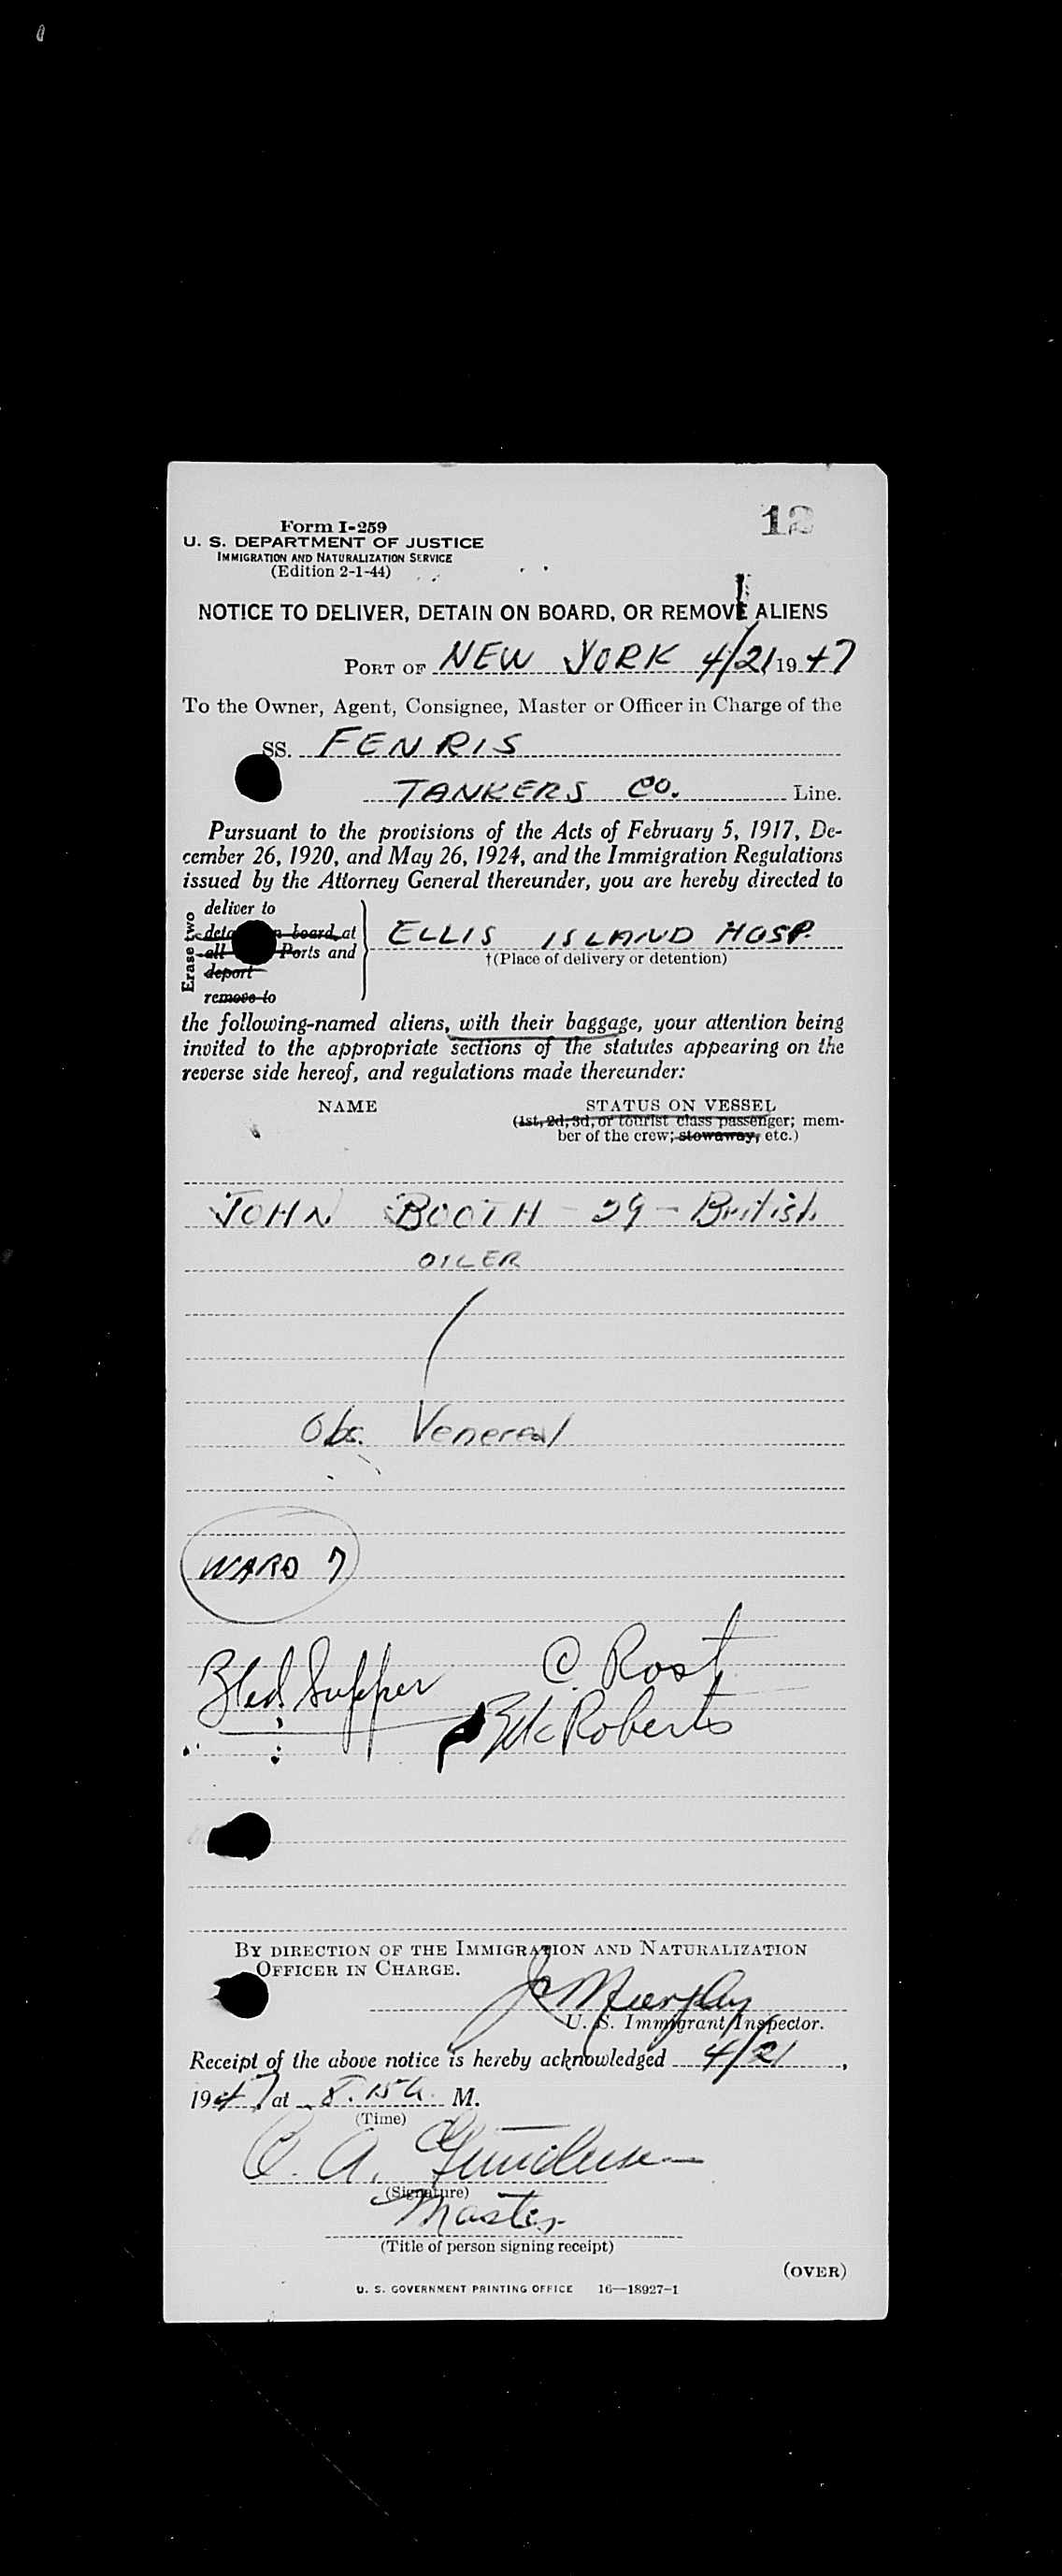 12
Form I-259
U. S. DEPARTMENT OF JUSTICE
IMMIGRATION AND NATURALIZATION SERVICE
(Edition 2-1-44)
NOTICE TO DELIVER, DETAIN ON BOARD, OR REMOVE ALIENS
PORT OF NEW YORK 4/21 1947
To the Owner, Agent, Consignee, Master or Officer in Charge of the
SS. FENRIS
TANKERS CO. Line.
Pursuant to the provisions of the Acts of February 5, 1917, De-
cember 26, 1920, and May 26, 1924, and the Immigration Regulations
issued by the Attorney General thereunder, you are hereby directed to
Erase two
deliver to
board at
all Ports and
deport
remove to
ELLIS ISLAND HOSP.
†(Place of delivery or detention)
the following-named aliens, with their baggage, your attention being
invited to the appropriate sections of the statutes appearing on the
reverse side hereof, and regulations made thereunder:
NAME STATUS ON VESSEL
(1st, 2d, 3d, or tourist class passenger; mem-
ber of the crew; stowaway, etc.)
JOHN BOOTH - 29 - British
OILER
Obs. Venereal
WARD 7
Supper C. Rost
Roberts
BY DIRECTION OF THE IMMIGRATION AND NATURALIZATION
OFFICER IN CHARGE.
Murphy
U. S. Immigrant Inspector.
Receipt of the above notice is hereby acknowledged 4/21,
1947 at 8.15 a. M.
(Time)
A.
(Signature)
Master
(Title of person signing receipt)
(OVER)
U. S. GOVERNMENT PRINTING OFFICE 16—18927-1